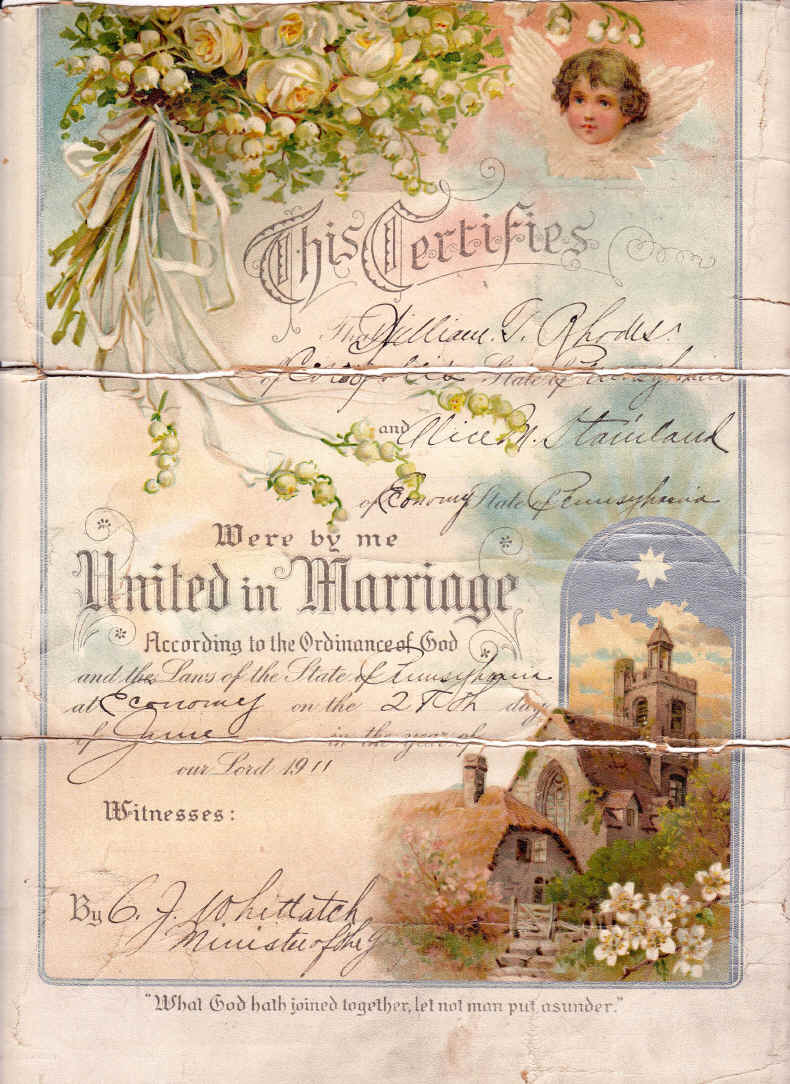 This Certifies
That William T. Rhodes
of Coraopolis State of Pennsylvania
and Alice M. Stainland
of Economy State of Pennsylvania
Were by me
United in Marriage
According to the Ordinance of God
and the Laws of the State of Pennsylvania
at Economy on the 28th day
of June in the year of
our Lord 1911
Witnesses:
By C. J. Whitlatch
Minister of the G
"What God hath joined together, let not man put asunder."